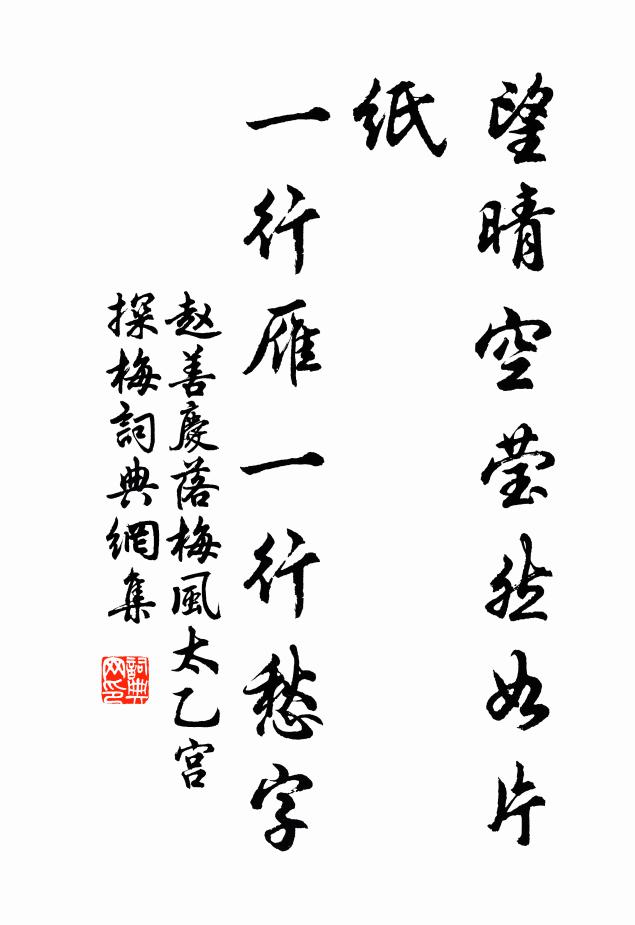 望晴空莹然如片
纸
一行雁一行愁字
赵善慶落梅風太乙宫
探梅詞典網集
詞典
网印